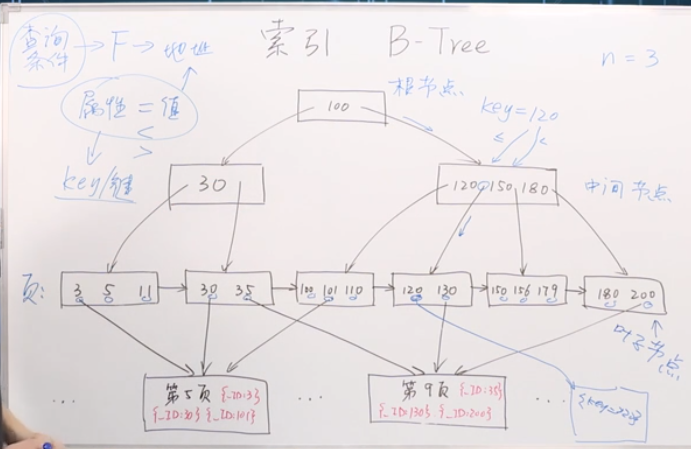 查询条件 → F → 地址
索引 B-Tree
n = 3
属性 = 值
<
>
key/键
100
根节点
key=120
≤ <
30
120 150 180
中间节点
页:
3 5 11
30 35
100 101 110
120 130
150 156 179
180 200
叶子节点
... 第5页 {_ID:3}
{_ID:30} {_ID:101}
... 第9页 {_ID:35}
{_ID:130} {_ID:200}
...